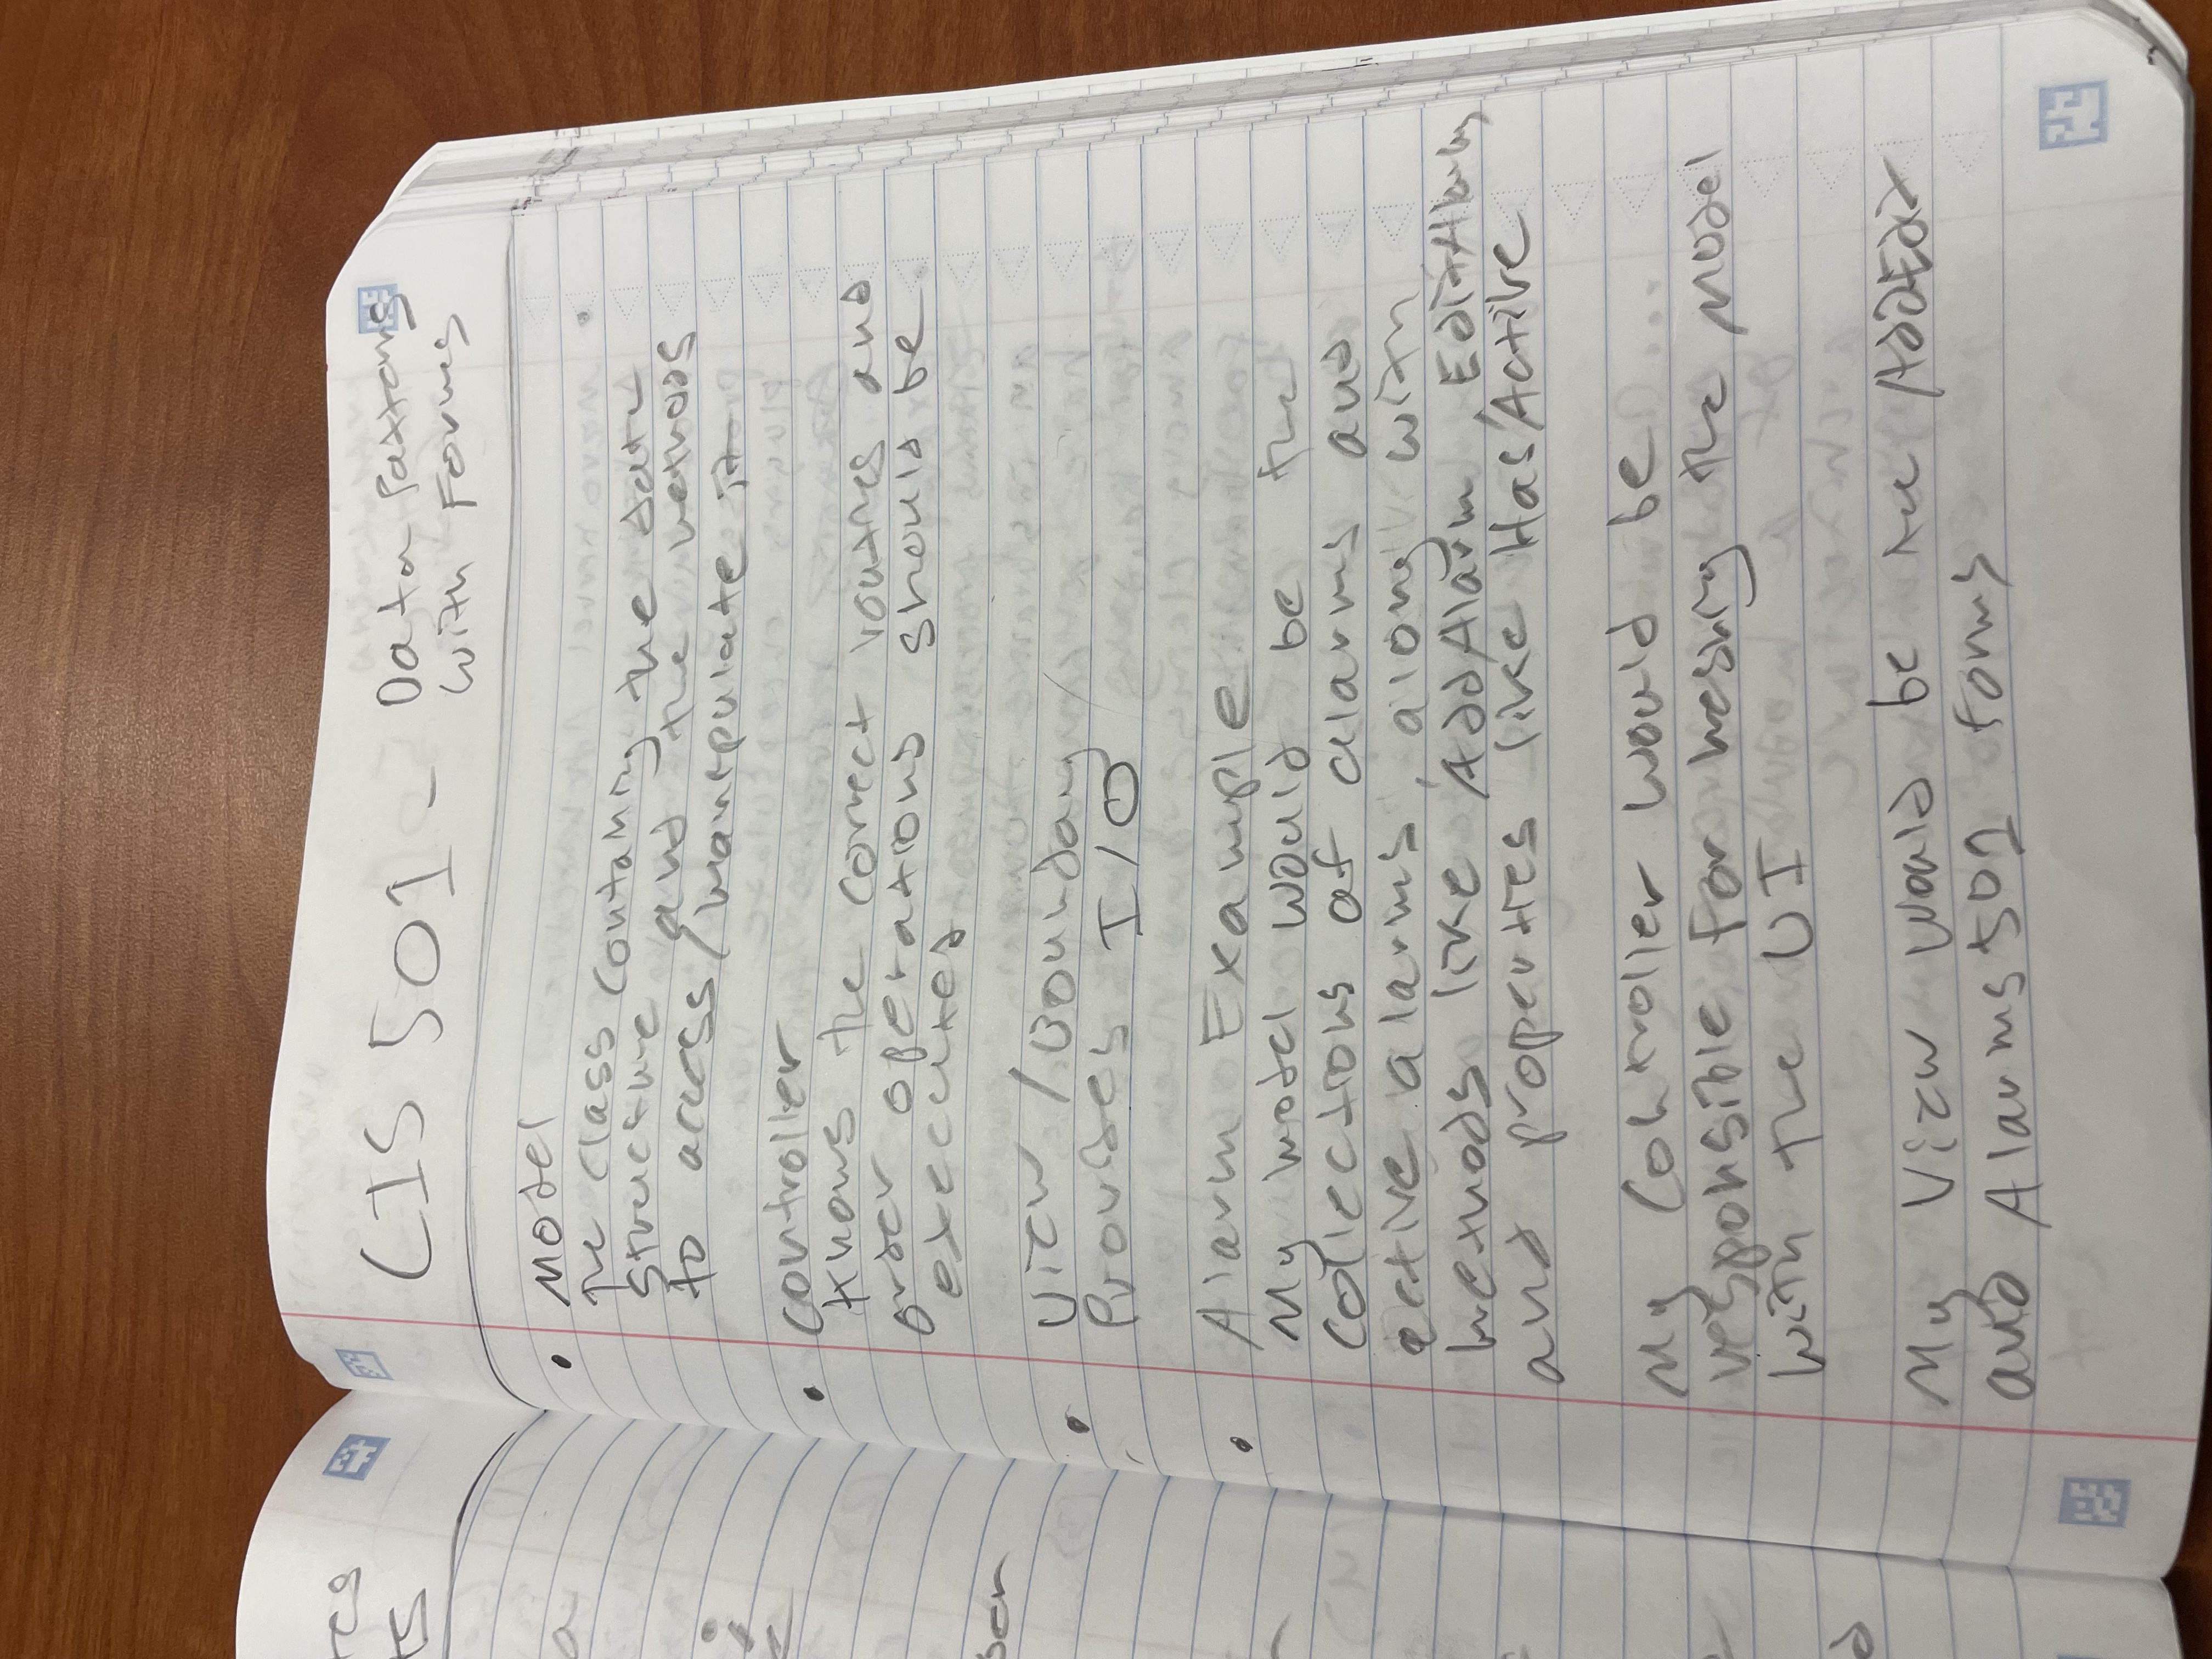 CIS 501 - Data Patterns
with Forms
• Model
The class containing the data
structure and the methods
to access/manipulate it
• Controller
Knows the correct routines and
order operations should be
executed
• View / Boundary
Provides I/O
• Alarm Example
My model would be the
collections of alarms and
active alarms, along with
methods like AddAlarm, EditAlarm,
and properties like HasActive
My Controller would be
responsible for meshing the Model
with the UI
My View would be the AddEdit
and Alarms501 forms